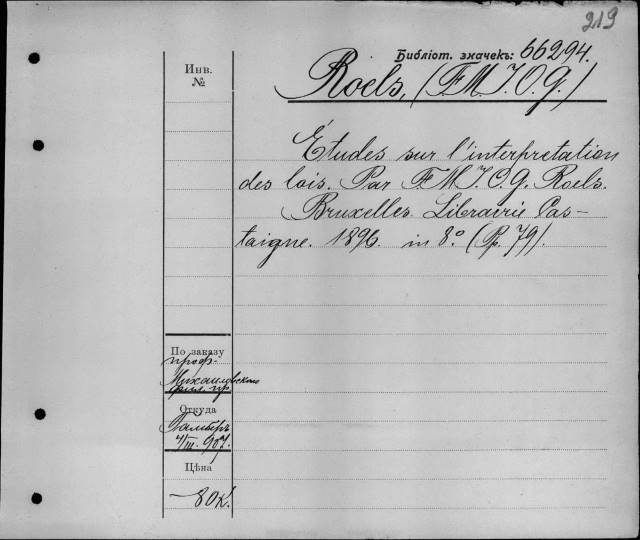 219
Библіот. значекъ: 66294.
Roels, (F.M.J.O.G.)
Инв.
№
Études sur l'interpretation
des lois. Par F.M.J.O.G. Roels.
Bruxelles. Librairie Cas-
taigne. 1896. in 8.° (P. 79).
По заказу
проф.
Михайловскаго
Откуда
4/III. 907.
Цѣна
— 80 к.